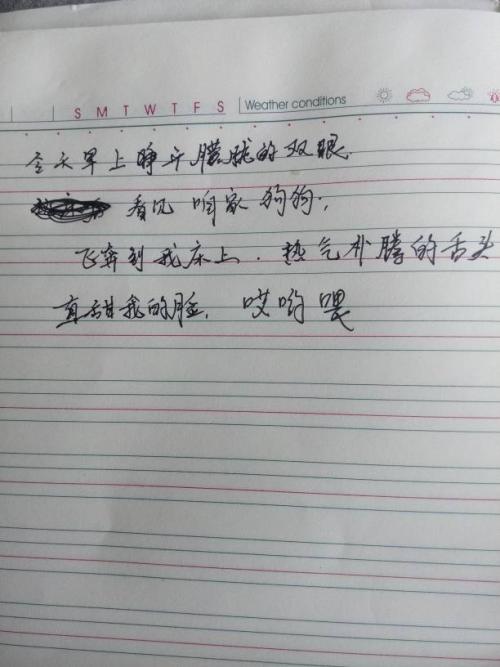 S M T W T F S Weather conditions
今天早上睁开朦胧的双眼
看见咱家狗狗,
飞奔到我床上,热气扑腾的舌头
直甜我的脸,哎哟喂